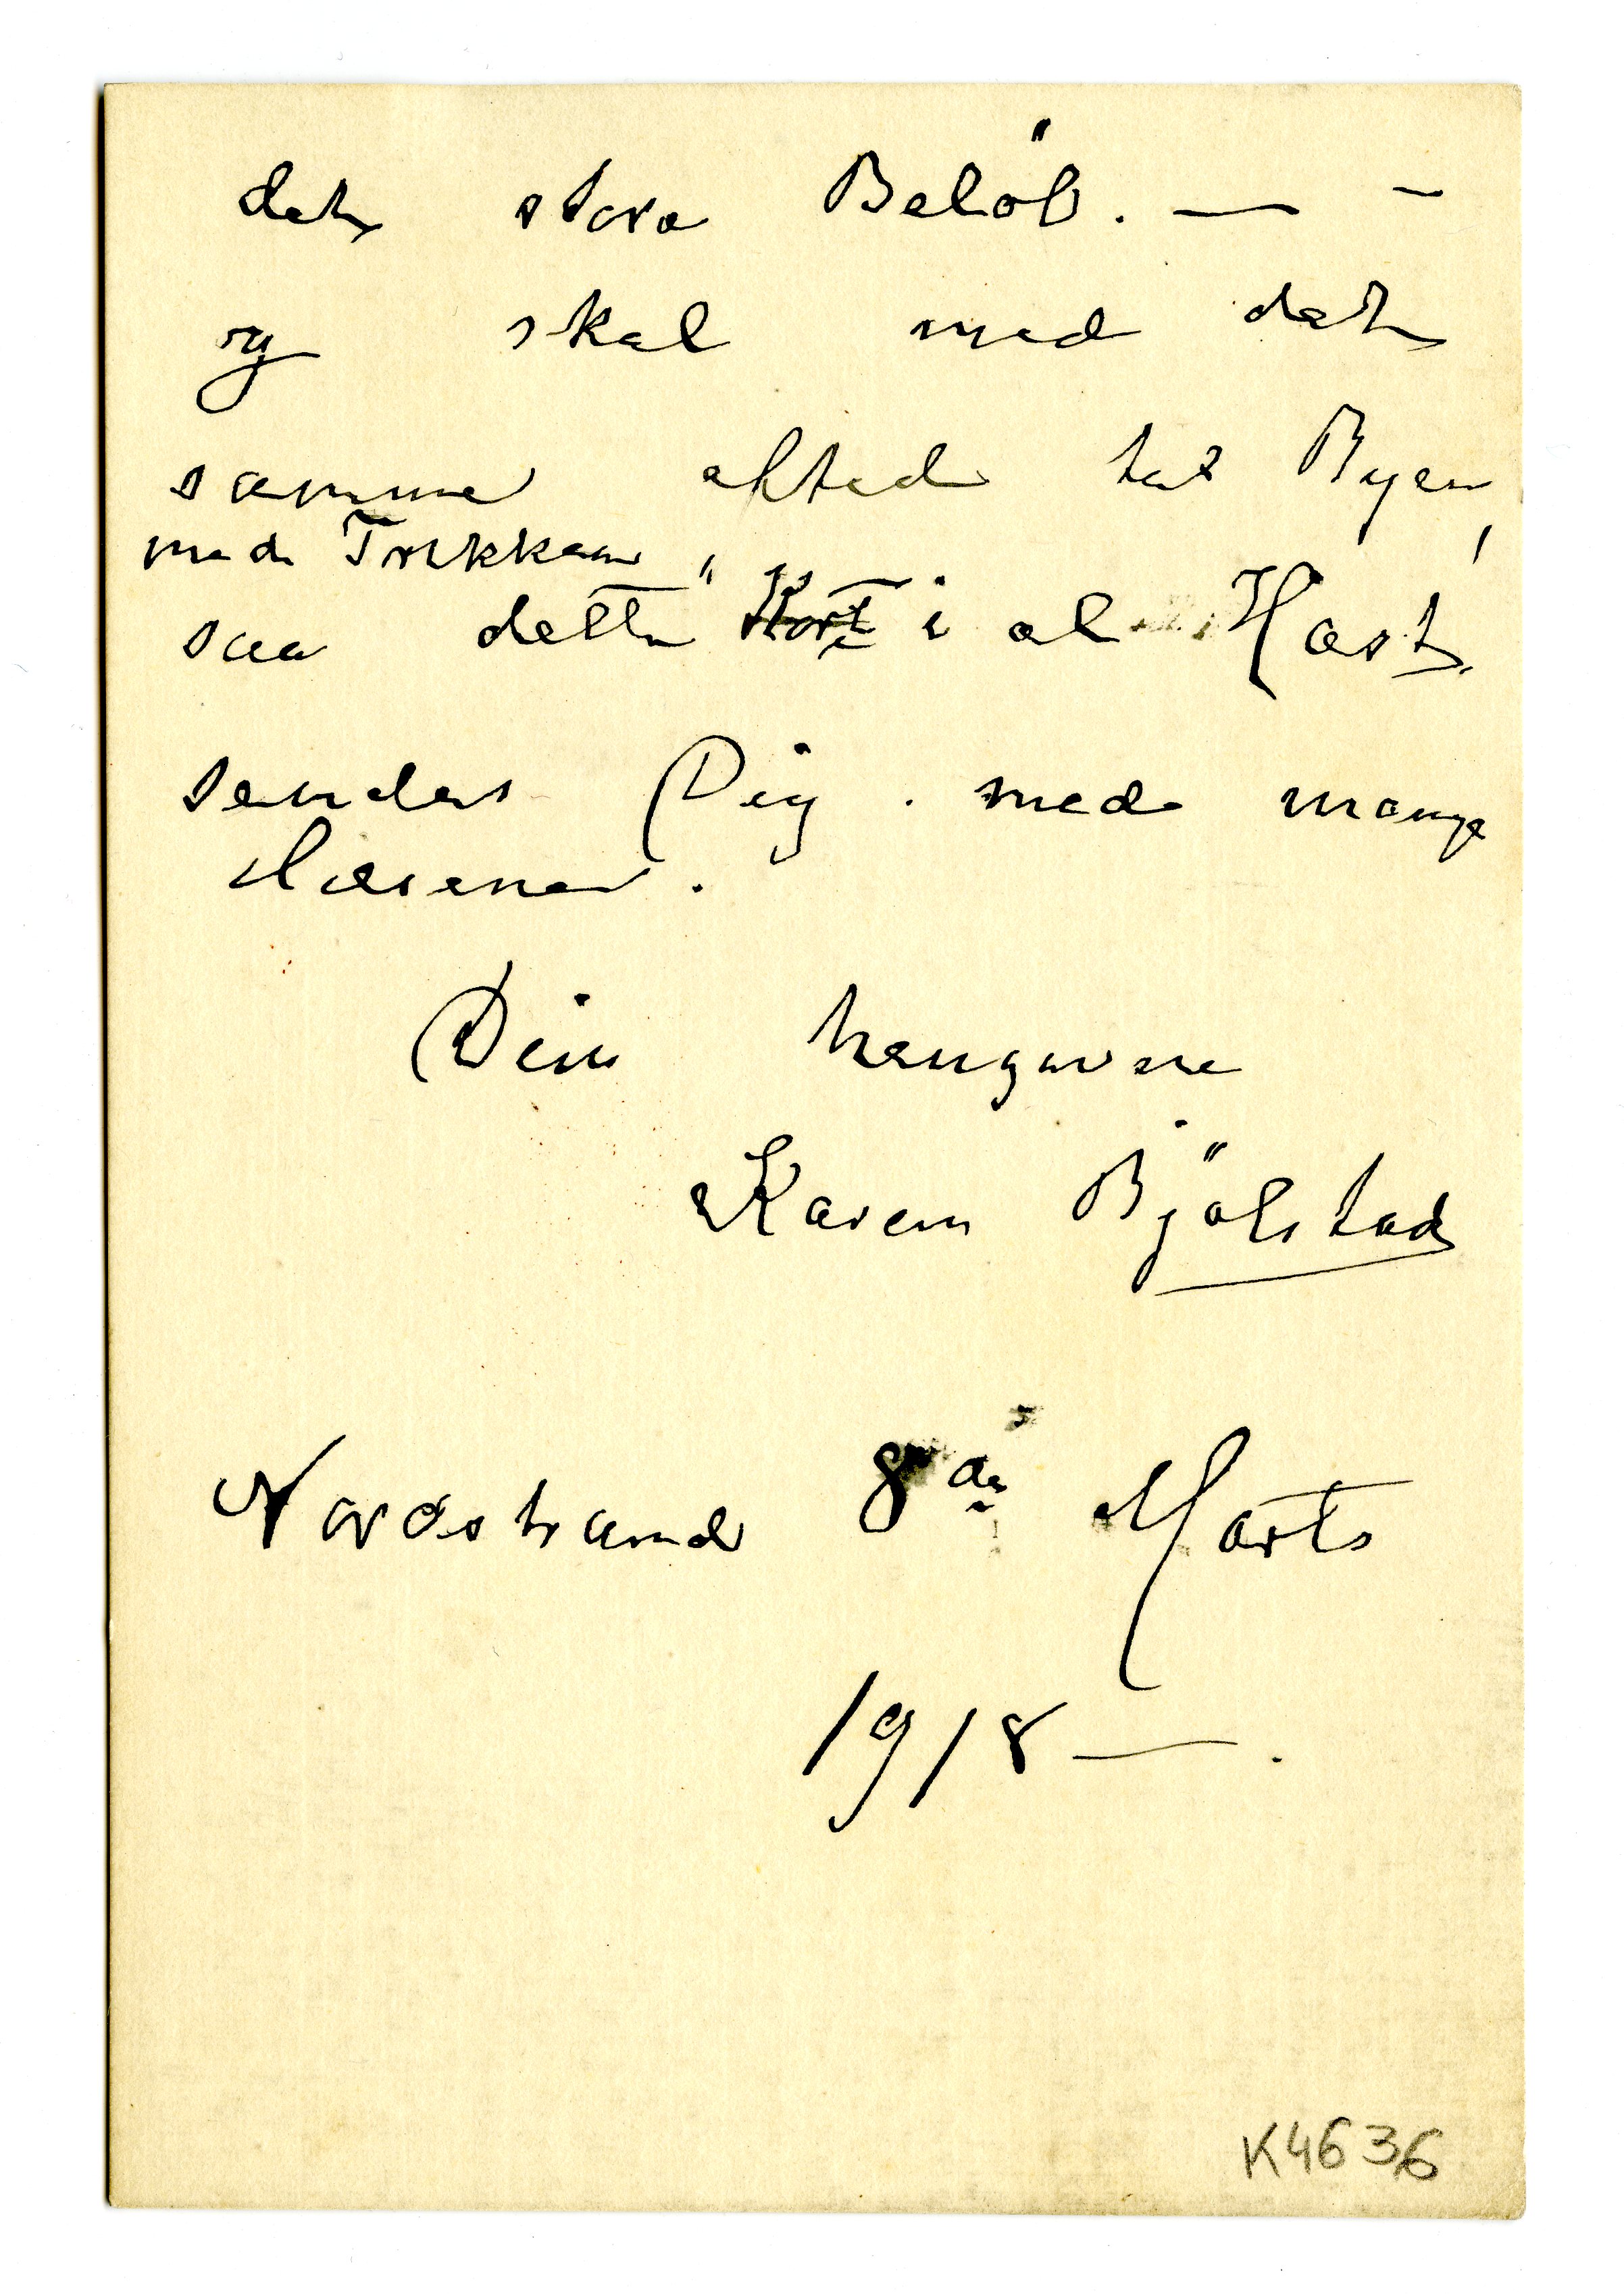 det store Belöb. — –
og skal med det
samme afsted til Byen
med Trikken,
saa dette Kort i al Hast,
sendes Dig . med mange
Hilsener .
Din hengivne
Karen Bjölstad
Nordstrand 8de Marts
1918 — .
K4636